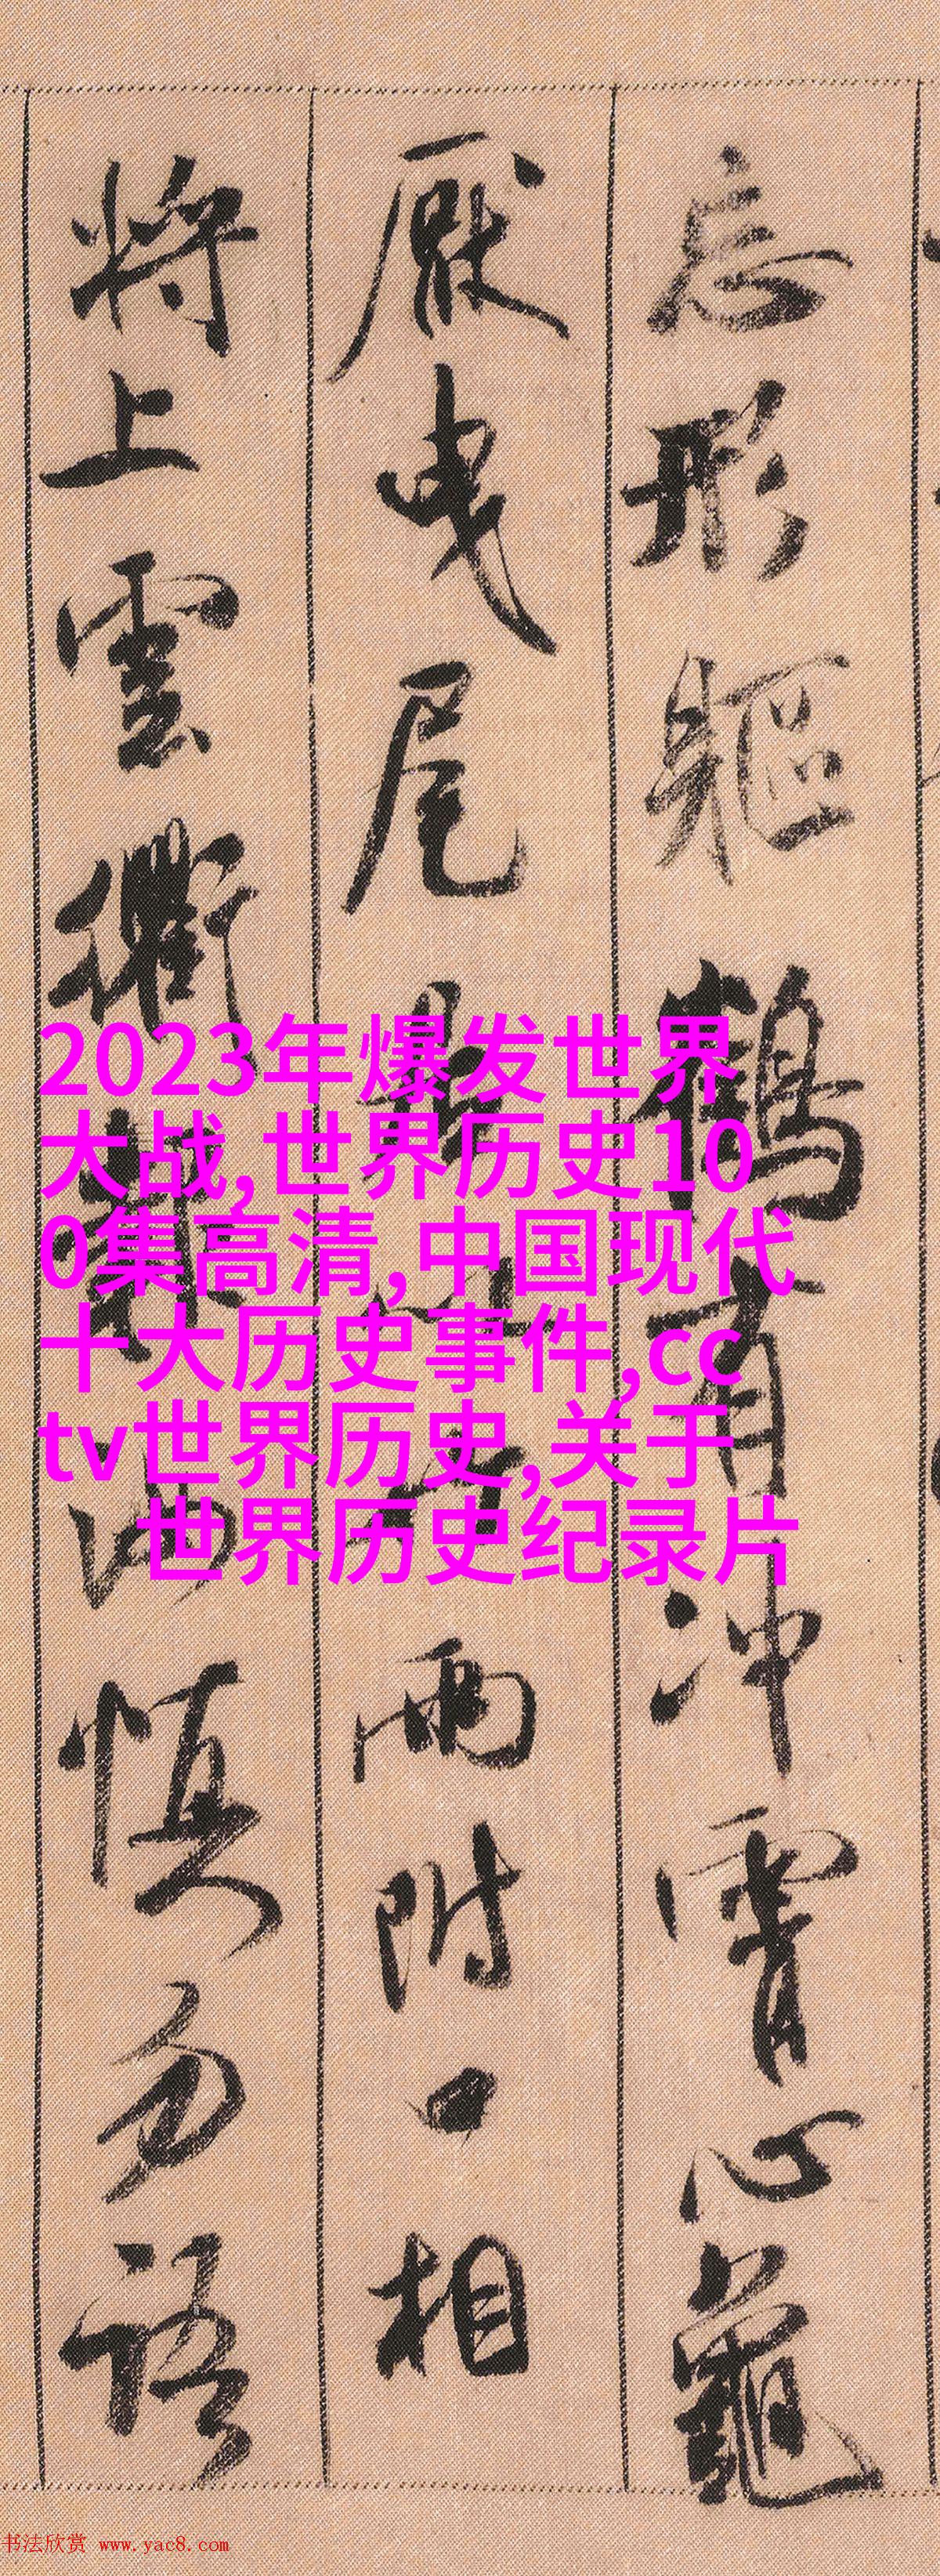 忘形軀鶴有沖霄心龜
厭曳尾居以竹兩附口相
將上雲衢報汝慎勿語
2023年爆发世界
大战,世界历史10
0集高清,中国现代
十大历史事件,cc
tv世界历史,关于
世界历史纪录片
书法欣赏 www.yac8.com